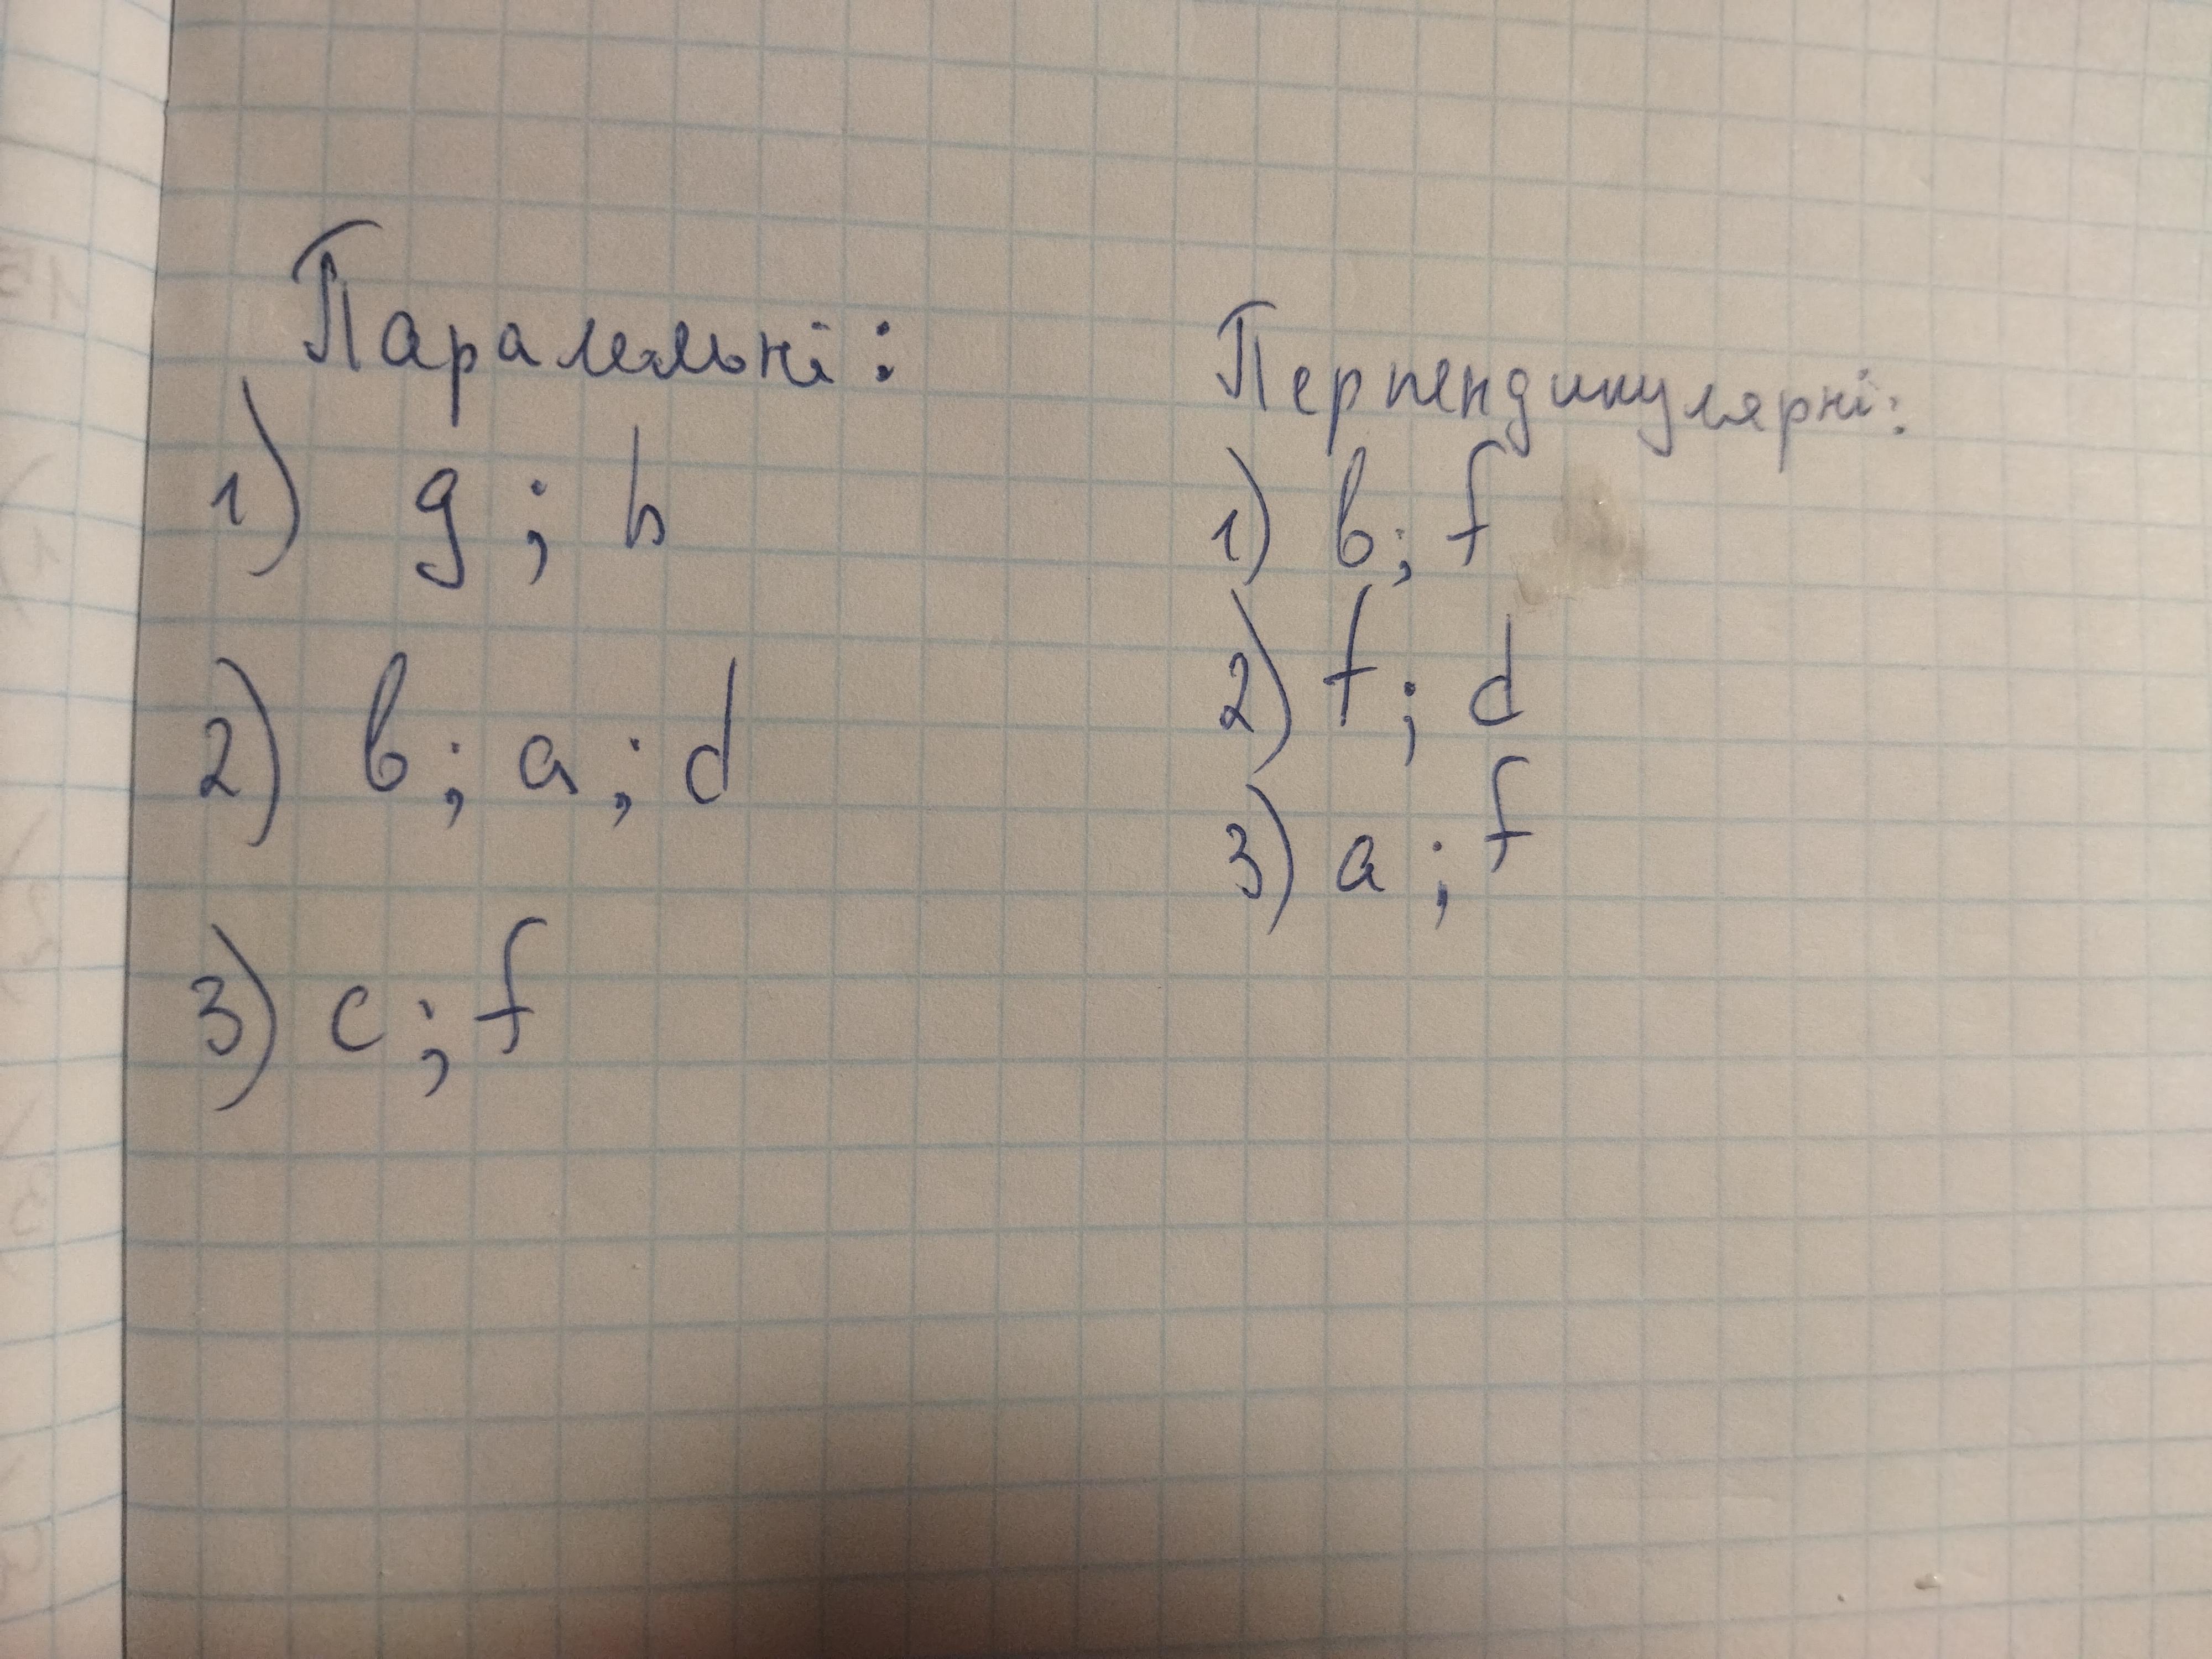 Паралельні:
1) g; h
2) b; a; d
3) c; f
Перпендикулярні:
1) b; f
2) f; d
3) a; f